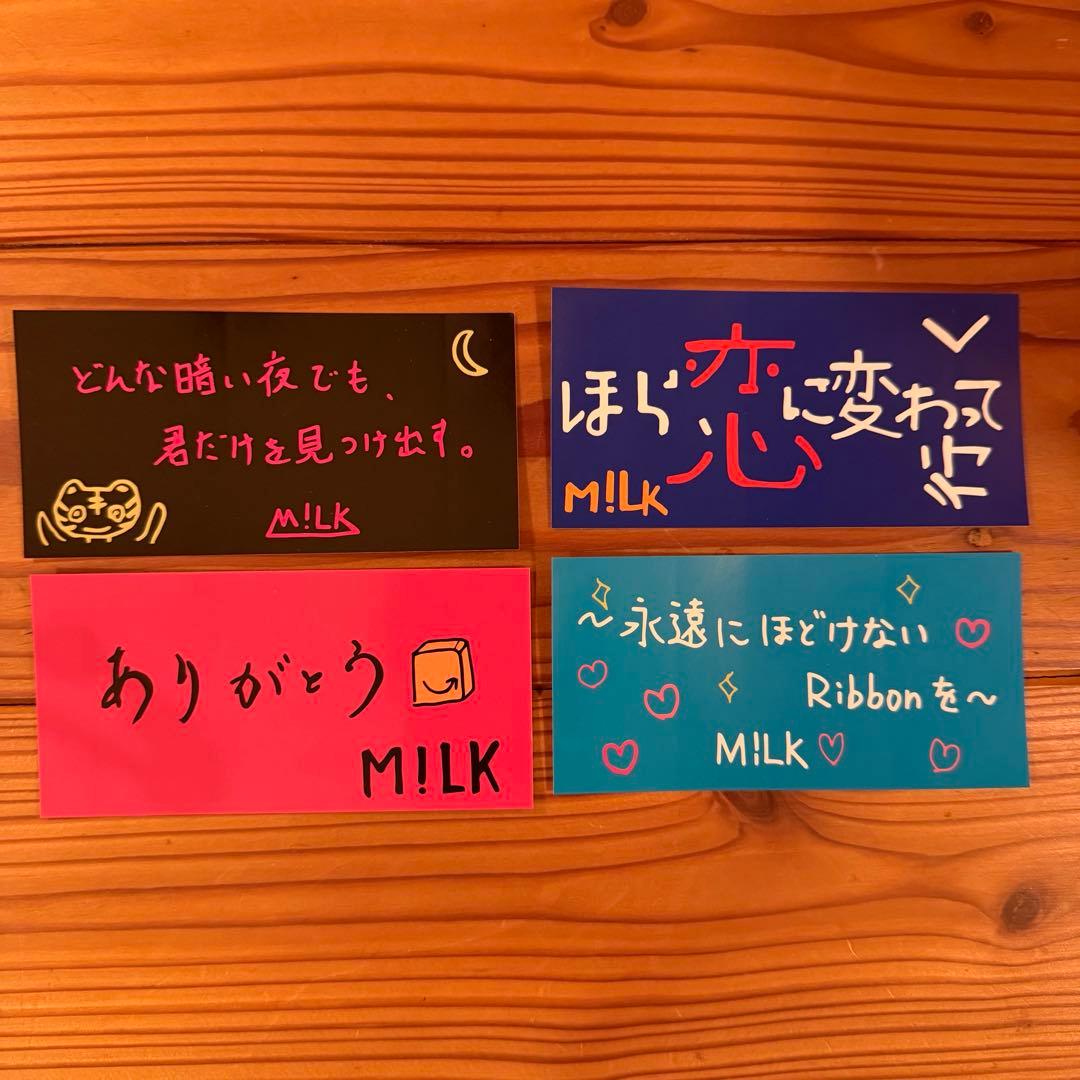 どんな暗い夜でも、
君だけを見つけ出す。
M!LK
ほら恋に変わって行く
M!LK
ありがとう
M!LK
〜永遠にほどけない
Ribbonを〜
M!LK